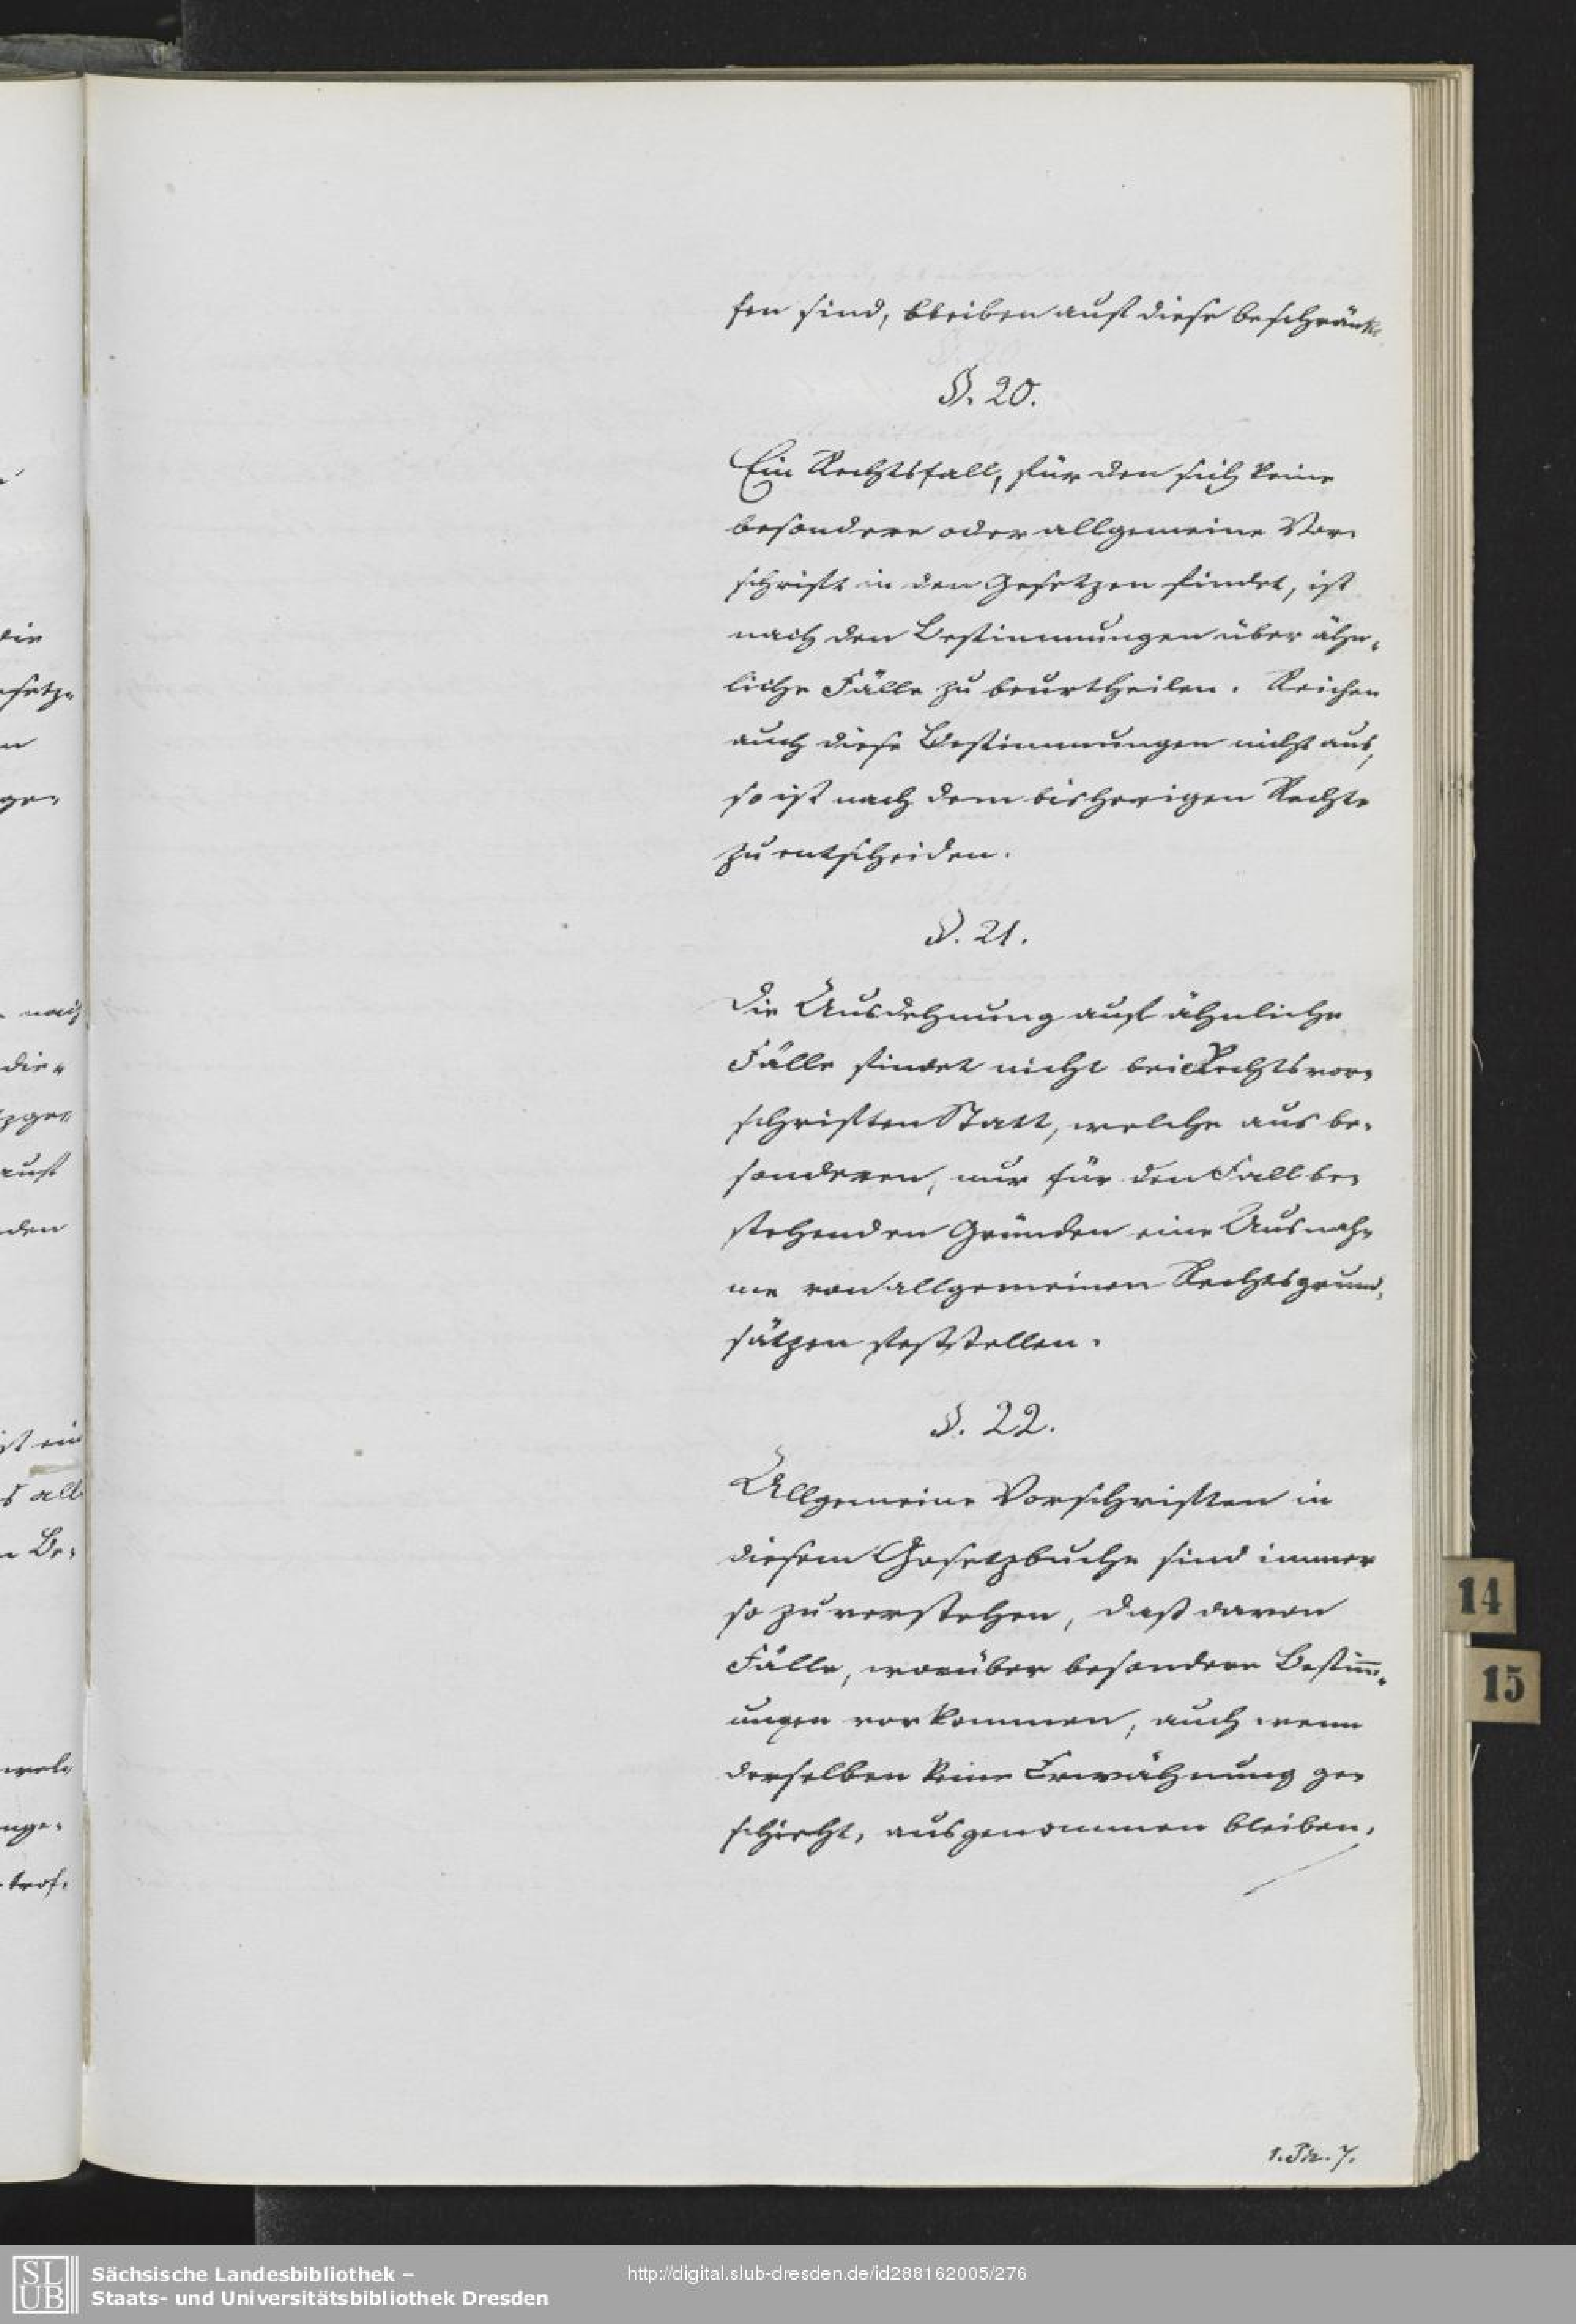 fen sind, bleiben auf diese beschränkt.
§. 20.
Ein Rechtsfall, für den sich keine
besondere oder allgemeine Vor-
schrift in den Gesetzen findet, ist
nach den Bestimmungen über ähn-
liche Fälle zu beurtheilen. Reichen
auch diese Bestimmungen nicht aus,
so ist nach dem bisherigen Rechte
zu entscheiden.
§. 21.
Die Ausdehnung auf ähnliche
Fälle findet nicht bei Rechtsvor-
schriften Statt, welche aus be-
sonderen, nur für den Fall be-
stehenden Gründen eine Ausnah-
me von allgemeinen Rechtsgrund-
sätzen feststellen.
§. 22.
Allgemeine Vorschriften in
diesem Gesetzbuche sind immer
so zu verstehen, daß davon
Fälle, worüber besondere Bestim̅-
ungen vorkommen, auch wenn
derselben keine Erwähnung ge-
schieht, ausgenommen bleiben.
1. Th. 7.
14
15
nach
die-
auf
den
Be-
SLUB
Sächsische Landesbibliothek –
Staats- und Universitätsbibliothek Dresden
http://digital.slub-dresden.de/id288162005/276